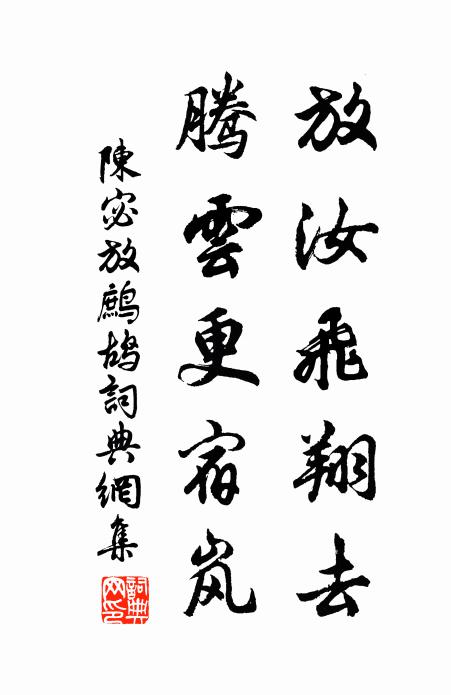 放汝飛翔去
騰雲更宿嵐
陳宓放鷓鴣詞典網集